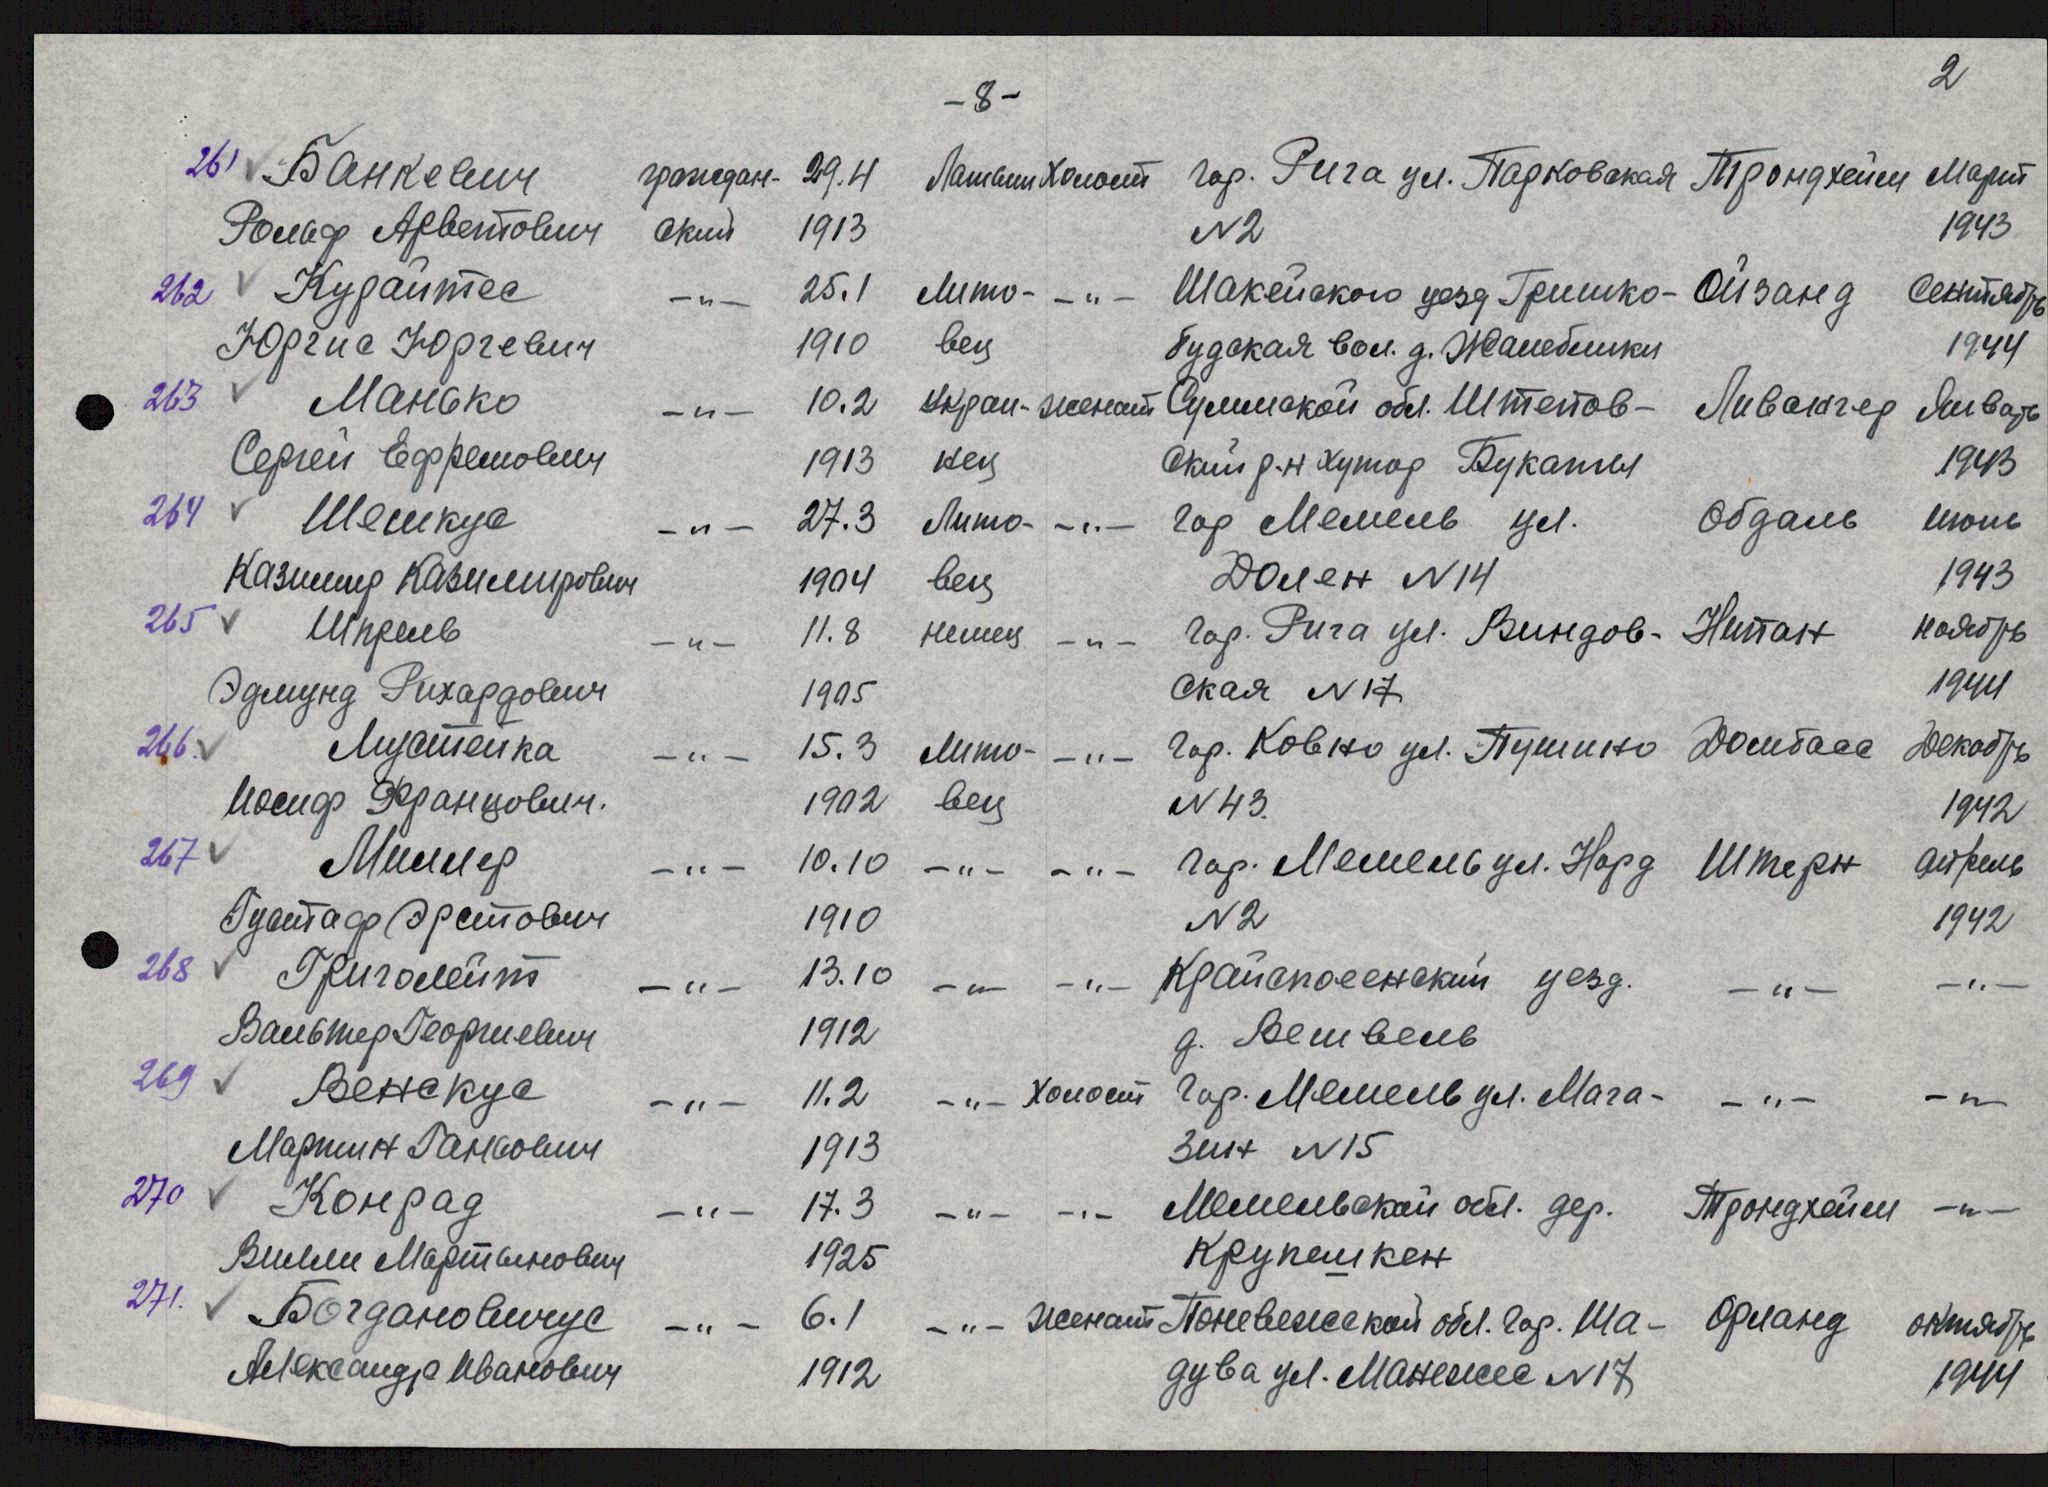 2
-8-
261 Банкевич граждан- 29.4 Латыш Холост гор. Рига ул. Парковская Трондхейм Март
Рольф Арветович ский 1913 N2 1943
262 Кудайтес -"- 25.1 Лито- -"- Шакейского уезд Гришко- Ойзанд Сентябрь
Юргис Юргевич 1910 вец будская вол. д. 1944
263 Манько -"- 10.2 Украи- женат Сумской обл. Штепов- Ливангер Январь
Сергей Ефремович 1913 нец ский р-н хутор Букаты 1943
264 Шемкус -"- 27.3 Лито- -"- гор Мемель ул. Обдаль июнь
Казимир Казимирович 1904 вец Долен N14 1943
265 Шпрель -"- 11.8 немец -"- гор. Рига ул. Виндов- Нипан ноябрь
Эдмунд Рихардович 1905 ская N17 1944
266. Мустейка -"- 15.3 Лито- -"- гор. Ковно ул. Пушино Домбасс Декабрь
Иосиф Францович. 1902 вец N43. 1942
267 Миллер -"- 10.10 -"- -"- гор. Мемель ул. Норд Штерн апрель
Густаф Эрстович 1910 N2 1942
268 Григолейт -"- 13.10 -"- -"- Крайспогенский уезд. -"- -"-
Вальтер Георгиевич 1912 д. Вешвель
269 Венскус -"- 11.2 -"- Холост гор. Мемель ул. Мага- -"- -"-
Мартин Гансович 1913 зин N15
270 Конрад -"- 17.3 -"- -"- Мемельской обл. дер. Трондхейм -"-
Вилли Мартынович 1925 Крупешкен
271. Богдановичус -"- 6.1 -"- женат Поневежской обл. гор. Ша- Орланд октябрь
Александр Иванович 1912 дува ул. Манежс N17 1944